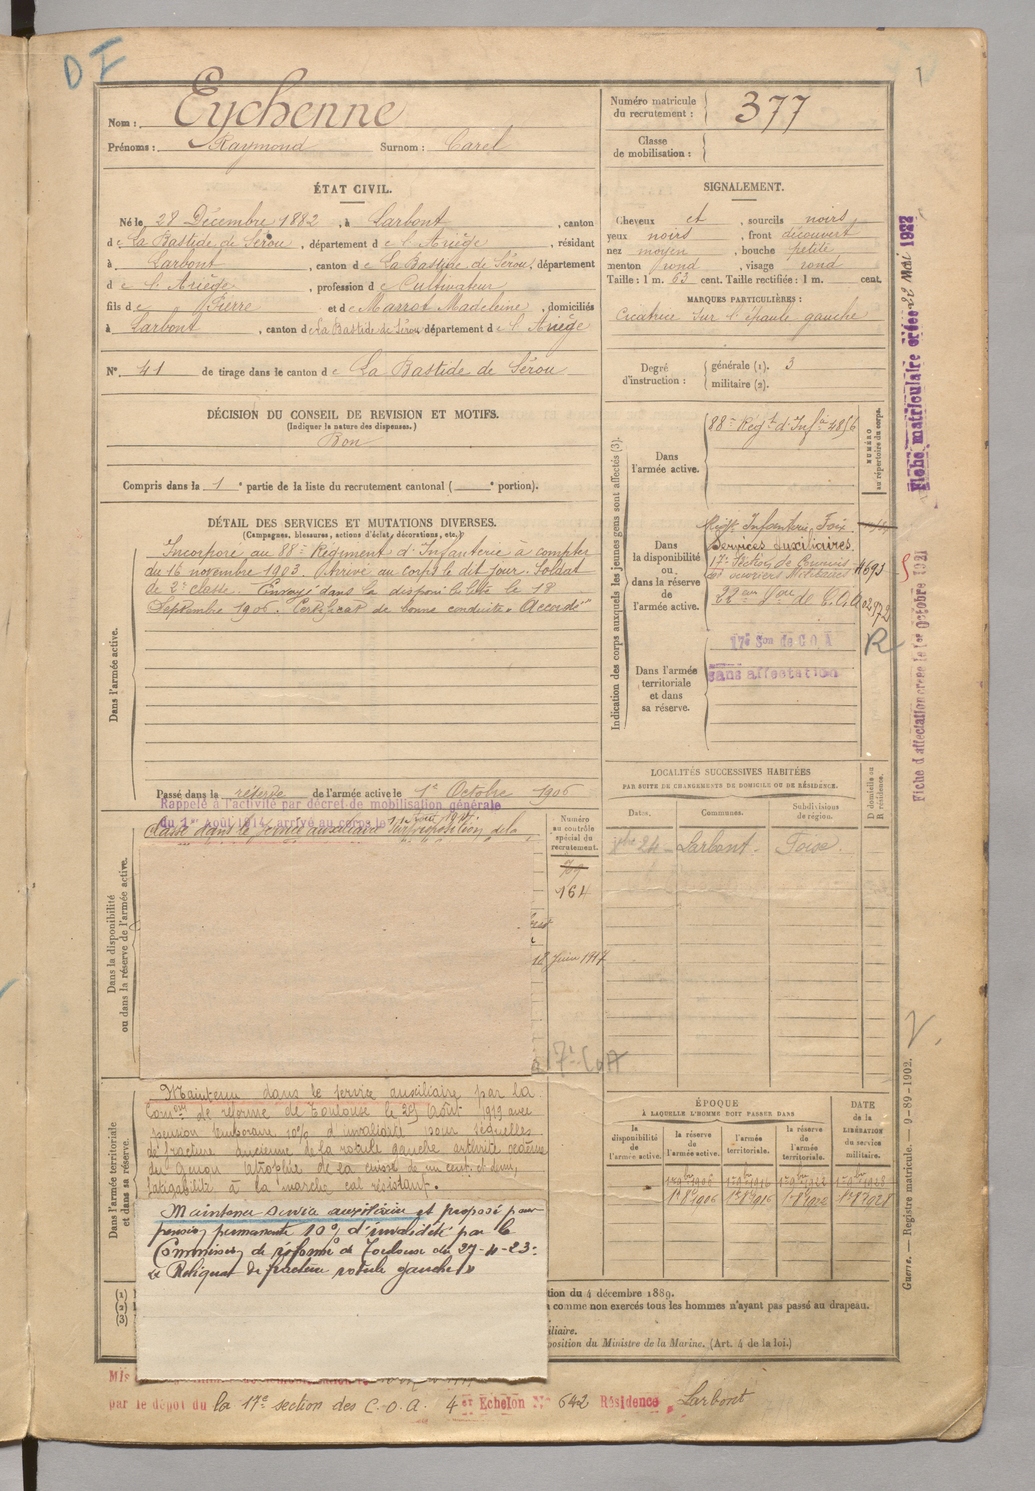 DI
1
Nom : Eychenne
Prénoms : Raymond Surnom : Carel
ÉTAT CIVIL.
Né le 28 Décembre 1882, à Larbont, canton
de La Bastide de Sérou, département de l'Ariège, résidant
à Larbont, canton de La Bastide de Sérou, département
de l'Ariège, profession de Cultivateur
fils de Pierre et de Marrot Madeleine, domiciliés
à Larbont, canton de La Bastide de Sérou département de l'Ariège
N° 41 de tirage dans le canton de La Bastide de Sérou
DÉCISION DU CONSEIL DE REVISION ET MOTIFS.
(Indiquer la nature des dispenses.)
Bon
Compris dans la 1e partie de la liste du recrutement cantonal ( e portion).
DÉTAIL DES SERVICES ET MUTATIONS DIVERSES.
(Campagnes, blessures, actions d'éclat, décorations, etc.)
Dans l'armée active.
Incorporé au 88e Régiment d'Infanterie à compter
du 16 novembre 1903. Arrivé au corps le dit jour. Soldat
de 2e classe. Envoyé dans la disponibilité le 18
Septembre 1906. Certificat de bonne conduite "Accordé"
Passé dans la réserve de l'armée active le 1er Octobre 1906
Rappelé à l'activité par décret de mobilisation générale
du 1er Août 1914 arrivé au corps le
Classé dans le service auxiliaire sur proposition de la
Dans la disponibilité
ou dans la réserve de l'armée active.
Numéro
au contrôle
spécial du
recrutement.
164
Juin 1917
Dans l'armée territoriale
et dans sa réserve.
Maintenu dans le service auxiliaire par la
Comon de réforme de Toulouse le 29 Août 1919 avec
pension temporaire 10% d'invalidité pour séquelles
de fracture ancienne de la rotule gauche
du Genou atrophie de la cuisse de un cent. et demi,
fatigabilité à la marche cal résistant.
Maintenu service auxiliaire et proposé pour
pension permanente 10% d'invalidité par la
Commission de réforme de Toulouse du 27-4-23:
« Reliquat de fracture rotule gauche »
(1)
(2)
(3)
tion du 4 décembre 1889.
comme non exercés tous les hommes n'ayant pas passé au drapeau.
iliaire.
position du Ministre de la Marine. (Art. 4 de la loi.)
par le dépôt du la 17e section des C.O.A. 4 er Echelon N° 642 Résidence Larbont
Numéro matricule
du recrutement : 377
Classe
de mobilisation :
SIGNALEMENT.
Cheveux et, sourcils noirs,
yeux noirs, front découvert
nez moyen, bouche petite,
menton rond, visage rond
Taille : 1 m. 63 cent. Taille rectifiée : 1 m. cent.
MARQUES PARTICULIÈRES :
Cicatrice sur l'épaule gauche
Degré
d'instruction :
générale (1). 3
militaire (2).
Indication des corps auxquels les jeunes gens sont affectés (3).
NUMÉRO
au répertoire du corps.
Dans
l'armée active.
88e Régt d'Infie 4856
Dans
la disponibilité
ou
dans la réserve
de l'armée
active.
Régt Infanterie Foix
Services Auxiliaires.
17e Section de Commis
et ouvriers Militaires
22e de C.O.A.
R
Dans l'armée
territoriale
et dans
sa réserve.
17e Son de C O A
sans affectation
LOCALITÉS SUCCESSIVES HABITÉES
PAR SUITE DE CHANGEMENTS DE DOMICILE OU DE RÉSIDENCE.
Dates. Communes. Subdivisions
de région.
D domicile ou
R résidence.
24 Larbont Foix.
ÉPOQUE
À LAQUELLE L'HOMME DOIT PASSER DANS
la
disponibilité
de l'armée
active.
la réserve
de
l'armée active.
l'armée
territoriale.
la réserve
de
l'armée
territoriale.
DATE
de la
LIBÉRATION
du service
militaire.
Fiche matriculaire créée le Mai 1922
Fiche d'affectation créée le 1er octobre 1921
Guerre. — Registre matricule. — 9-89-1902.